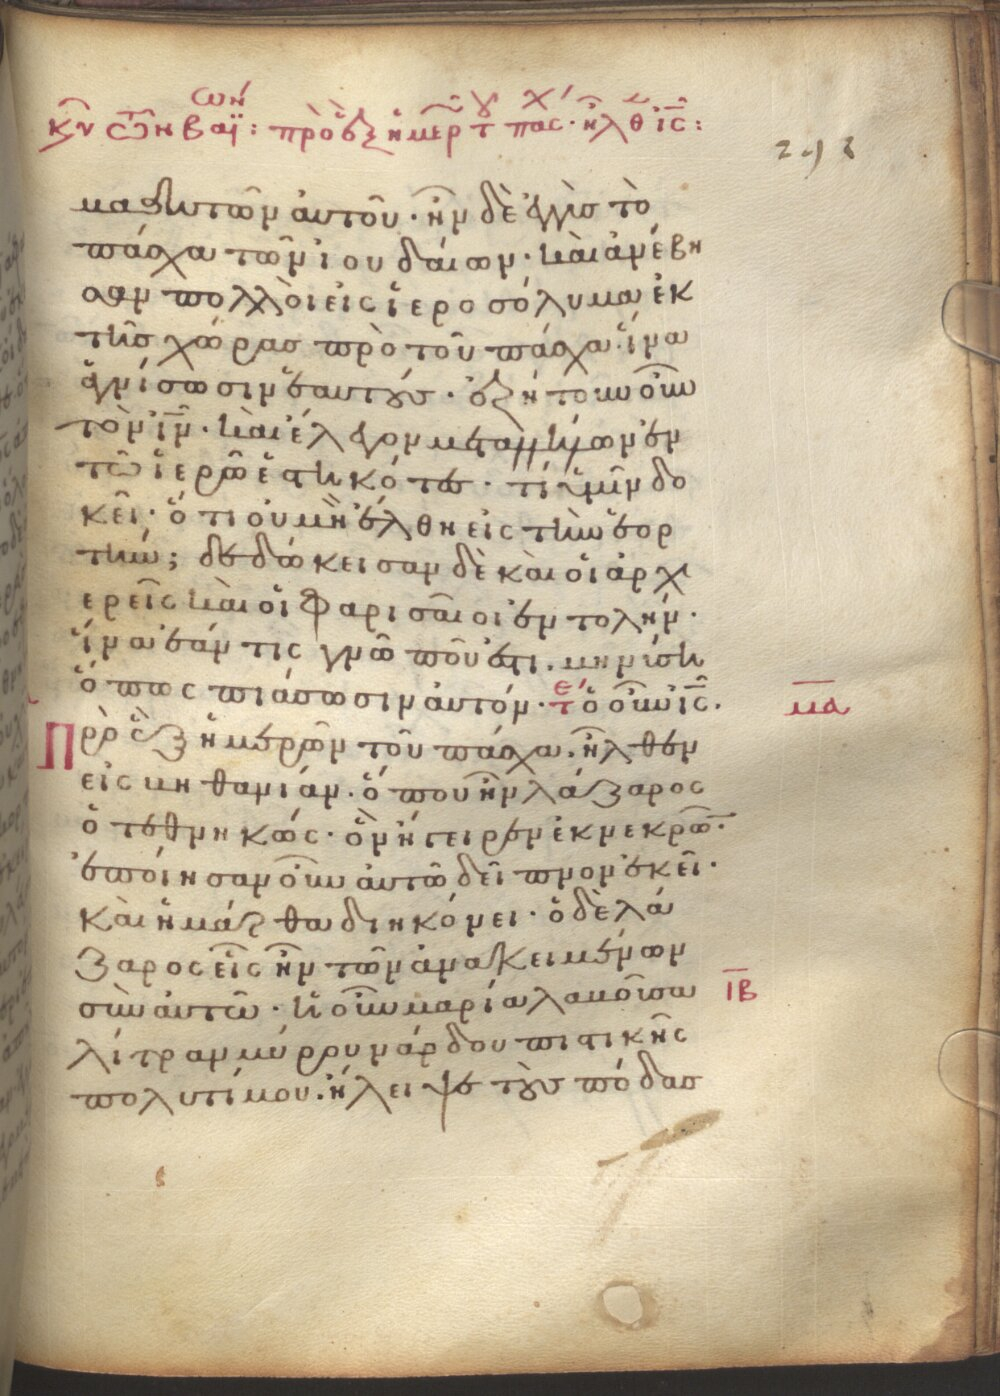 μαθητῶν αὐτοῦ· ἦν δὲ ἐγγὺς τὸ
πάσχα τῶν ἰουδαίων· καὶ ἀνέβη
σαν πολλοὶ εἰς ἱεροσόλυμα ἐκ
τῆς χώρας πρὸ τοῦ πάσχα· ἵνα
ἁγνίσωσιν ἑαυτούς· ἐζήτουν οὖν
τὸν ἰν̅· καὶ ἔλεγον μετ ἀλλήλων ἐν
τῶ ἱερῶ ἑστηκότες· τί ὑμῖν δο
κεῖ· ὅτι οὐ μὴ ἔλθη εἰς τὴν ἑορ
τήν; δεδώκεισαν δὲ καὶ οἱ ἀρχι
ερεῖς καὶ οἱ φαρισαῖοι ἐντολήν·
ἵνα ἐάν τις γνῶ ποῦ ἐστι· μηνύση
ὅπως πιάσωσιν αὐτόν· ὁ οὖν ἰς̅·
Πρὸ ἓξ ἡμερῶν τοῦ πάσχα· ἦλθεν μα̅
εἰς βηθανίαν· ὅπου ἦν λάζαρος
ὁ τεθνηκώς· ὃν ἤγειρεν ἐκ νεκρῶν·
ἐποίησαν οὖν αὐτῶ δεῖπνον ἐκεῖ·
καὶ ἡ μάρθα διηκόνει· ὁ δὲ λά
ζαρος εἷς ἦν τῶν ἀνακειμένων
σὺν αὐτῶ· ἡ οὖν μαρία λαβοῦσα ιβ̅
λίτραν μύρου νάρδου πιστικῆς
πολυτίμου· ἤλειψε τοὺς πόδας